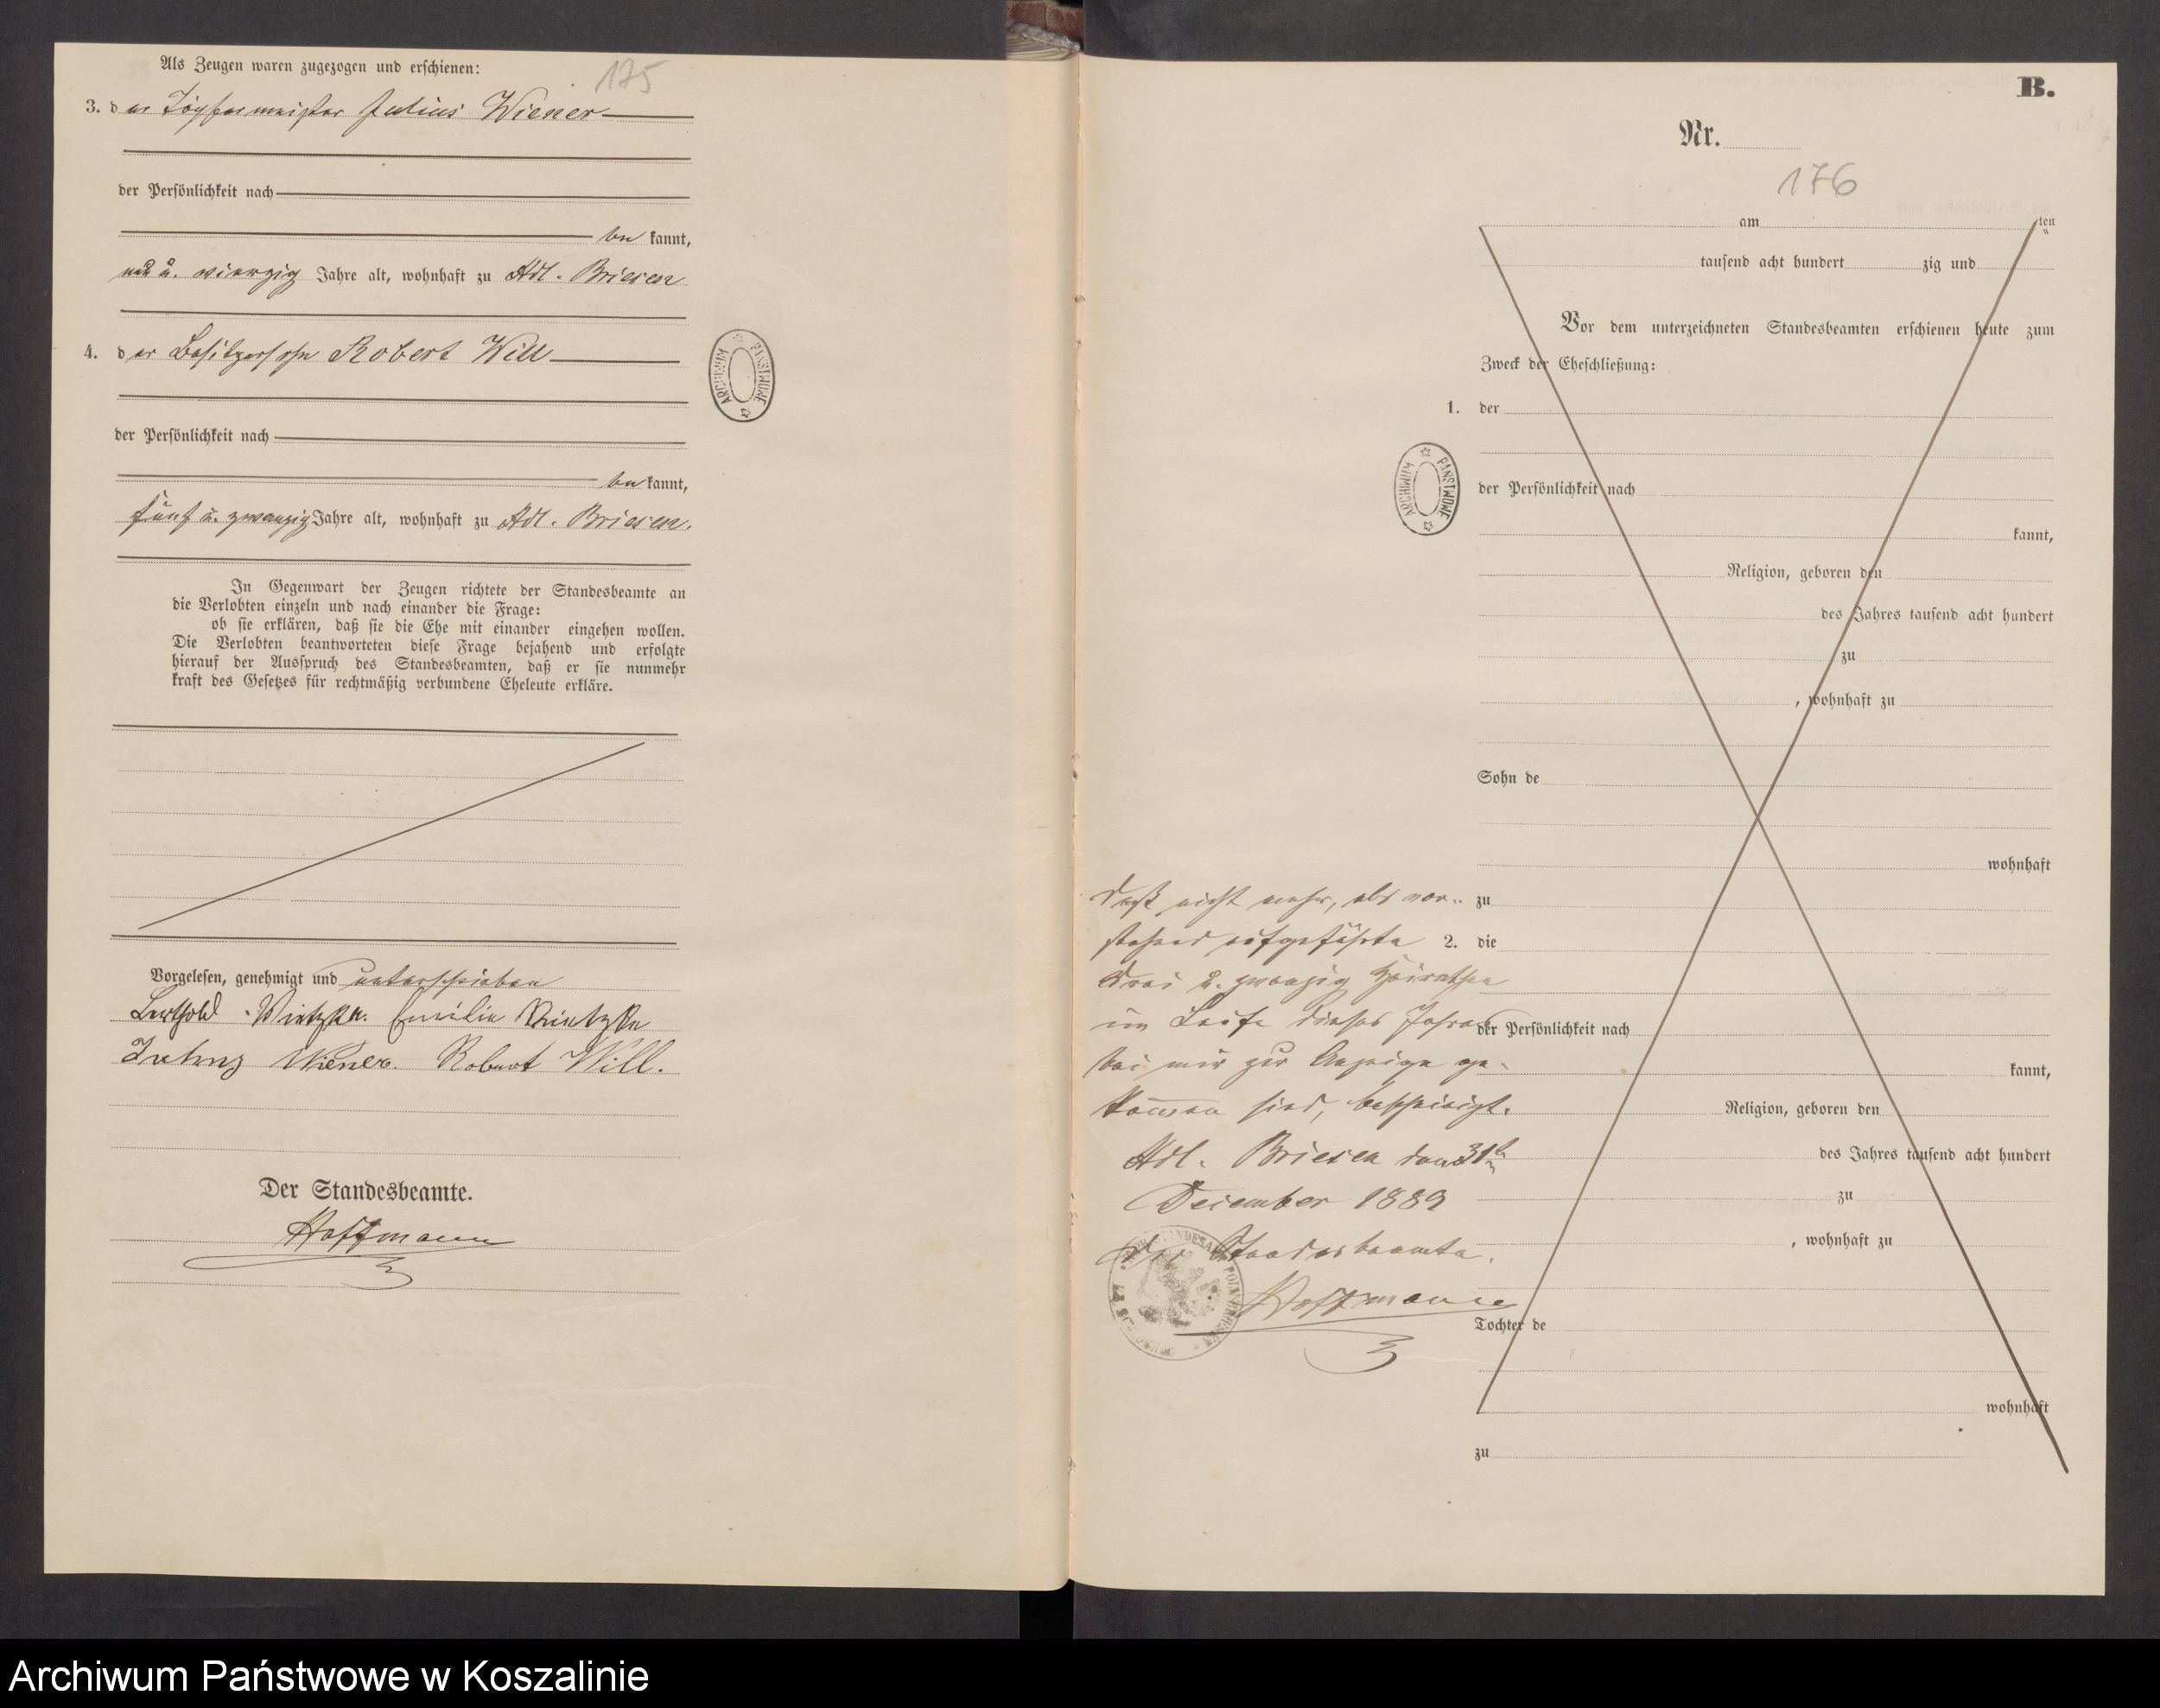 Als Zeugen waren zugezogen und erschienen:
175
3. der Töpfermeister Julius Wiener
der Persönlichkeit nach
bekannt,
u. vierzig Jahre alt, wohnhaft zu Adl. Briesen
4. der Besitzersohn Robert Will
der Persönlichkeit nach
bekannt,
fünf u. zwanzig Jahre alt, wohnhaft zu Adl. Briesen.
In Gegenwart der Zeugen richtete der Standesbeamte an
die Verlobten einzeln und nach einander die Frage:
ob sie erklären, daß sie die Ehe mit einander eingehen wollen.
Die Verlobten beantworteten diese Frage bejahend und erfolgte
hierauf der Ausspruch des Standesbeamten, daß er sie nunmehr
kraft des Gesetzes für rechtmäßig verbundene Eheleute erkläre.
Vorgelesen, genehmigt und unterschrieben
Berthold Wietzke. Emilie Wietzke
Julius Wiener. Robert Will.
Der Standesbeamte.
Hoffmann
ARCHIWUM PAŃSTWOWE
B.
Nr.
176
am ten
tausend acht hundert zig und
Vor dem unterzeichneten Standesbeamten erschienen heute zum
Zweck der Eheschließung:
1. der
ARCHIWUM PAŃSTWOWE
der Persönlichkeit nach
kannt,
Religion, geboren den
des Jahres tausend acht hundert
zu
, wohnhaft zu
Sohn de
wohnhaft
zu
2. die
der Persönlichkeit nach
kannt,
Religion, geboren den
des Jahres tausend acht hundert
zu
, wohnhaft zu
Tochter de
wohnhaft
zu
Daß nicht mehr, als vor-
stehend aufgeführte
drei u. zwanzig Heirathen
im Laufe dieses Jahres
bei mir zur Anzeige ge-
kommen sind, bescheinigt.
Adl. Briesen den 31t
December 1889
Der Standesbeamte.
Hoffmann
Archiwum Państwowe w Koszalinie